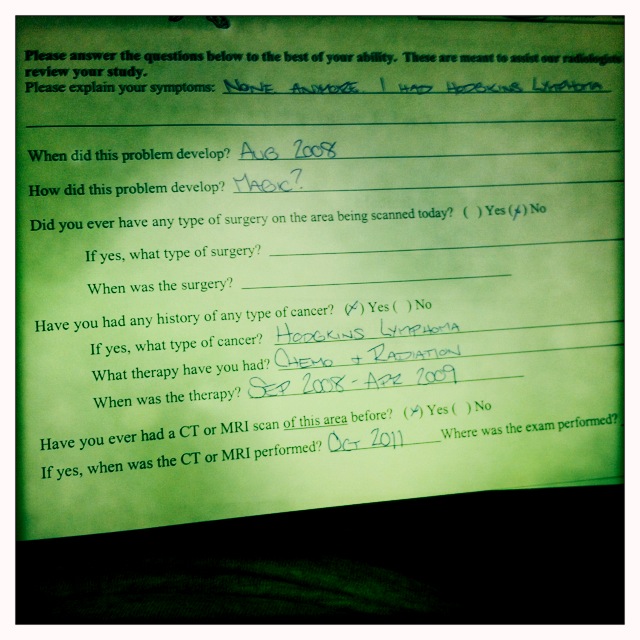 Please answer the questions below to the best of your ability. These are meant to assist our radiologists
review your study.
Please explain your symptoms: NONE ANYMORE. I HAD HODGKINS LYMPHOMA
When did this problem develop? AUG 2008
How did this problem develop? MAGIC?
Did you ever have any type of surgery on the area being scanned today? ( ) Yes (x) No
If yes, what type of surgery?
When was the surgery?
Have you had any history of any type of cancer? (x) Yes ( ) No
If yes, what type of cancer? HODGKINS LYMPHOMA
What therapy have you had? CHEMO + RADIATION
When was the therapy? SEP 2008 - APR 2009
Have you ever had a CT or MRI scan of this area before? (x) Yes ( ) No
If yes, when was the CT or MRI performed? OCT 2011 Where was the exam performed?